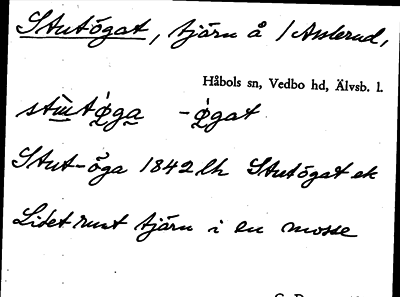 Stutögat, tjärn å / Asslerud,
Håbols sn, Vedbo hd, Älvsb. l.
-ø̀gat
Stut-öga 1842 lh Stutögat ek
Litet runt tjärn i en mosse